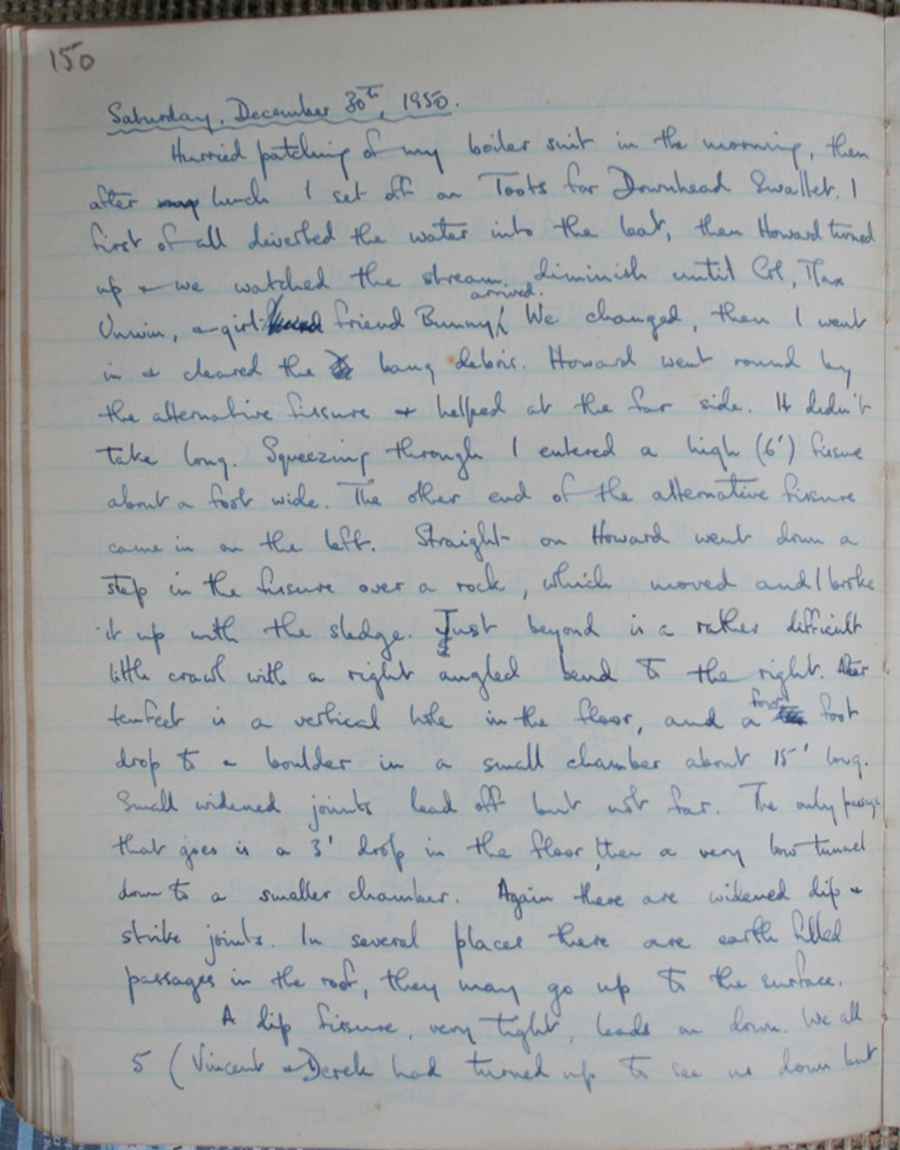 150
Saturday, December 30th, 1950.
Hurried patching of my boiler suit in the morning, then
after lunch I set off on Toots for Downhead Swallet. I
first of all diverted the water into the leat, then Howard turned
up & we watched the stream diminish until Col,
arrived.
Unwin, & girl friend Bunny. We changed, then I went
in & cleared the bang debris. Howard went round by
the alternative fissure & helped at the far side. It didn't
take long. Squeezing through I entered a high (6') fissure
about a foot wide. The other end of the alternative fissure
came in on the left. Straight on Howard went down a
step in the fissure over a rock, which moved and I broke
it up with the sledge. Just beyond is a rather difficult
little crawl with a right angled bend to the right. After
ten feet is a vertical hole in the floor, and a four foot
drop to a boulder in a small chamber about 15' long.
Small widened joints lead off but not far. The only passage
that goes is a 3' drop in the floor, then a very low tunnel
down to a smaller chamber. Again there are widened dip &
strike joints. In several places there are earth filled
passages in the roof, they may go up to the surface.
A dip fissure, very tight, leads on down. We all
5 (Vincent & Derek had turned up to see us down but